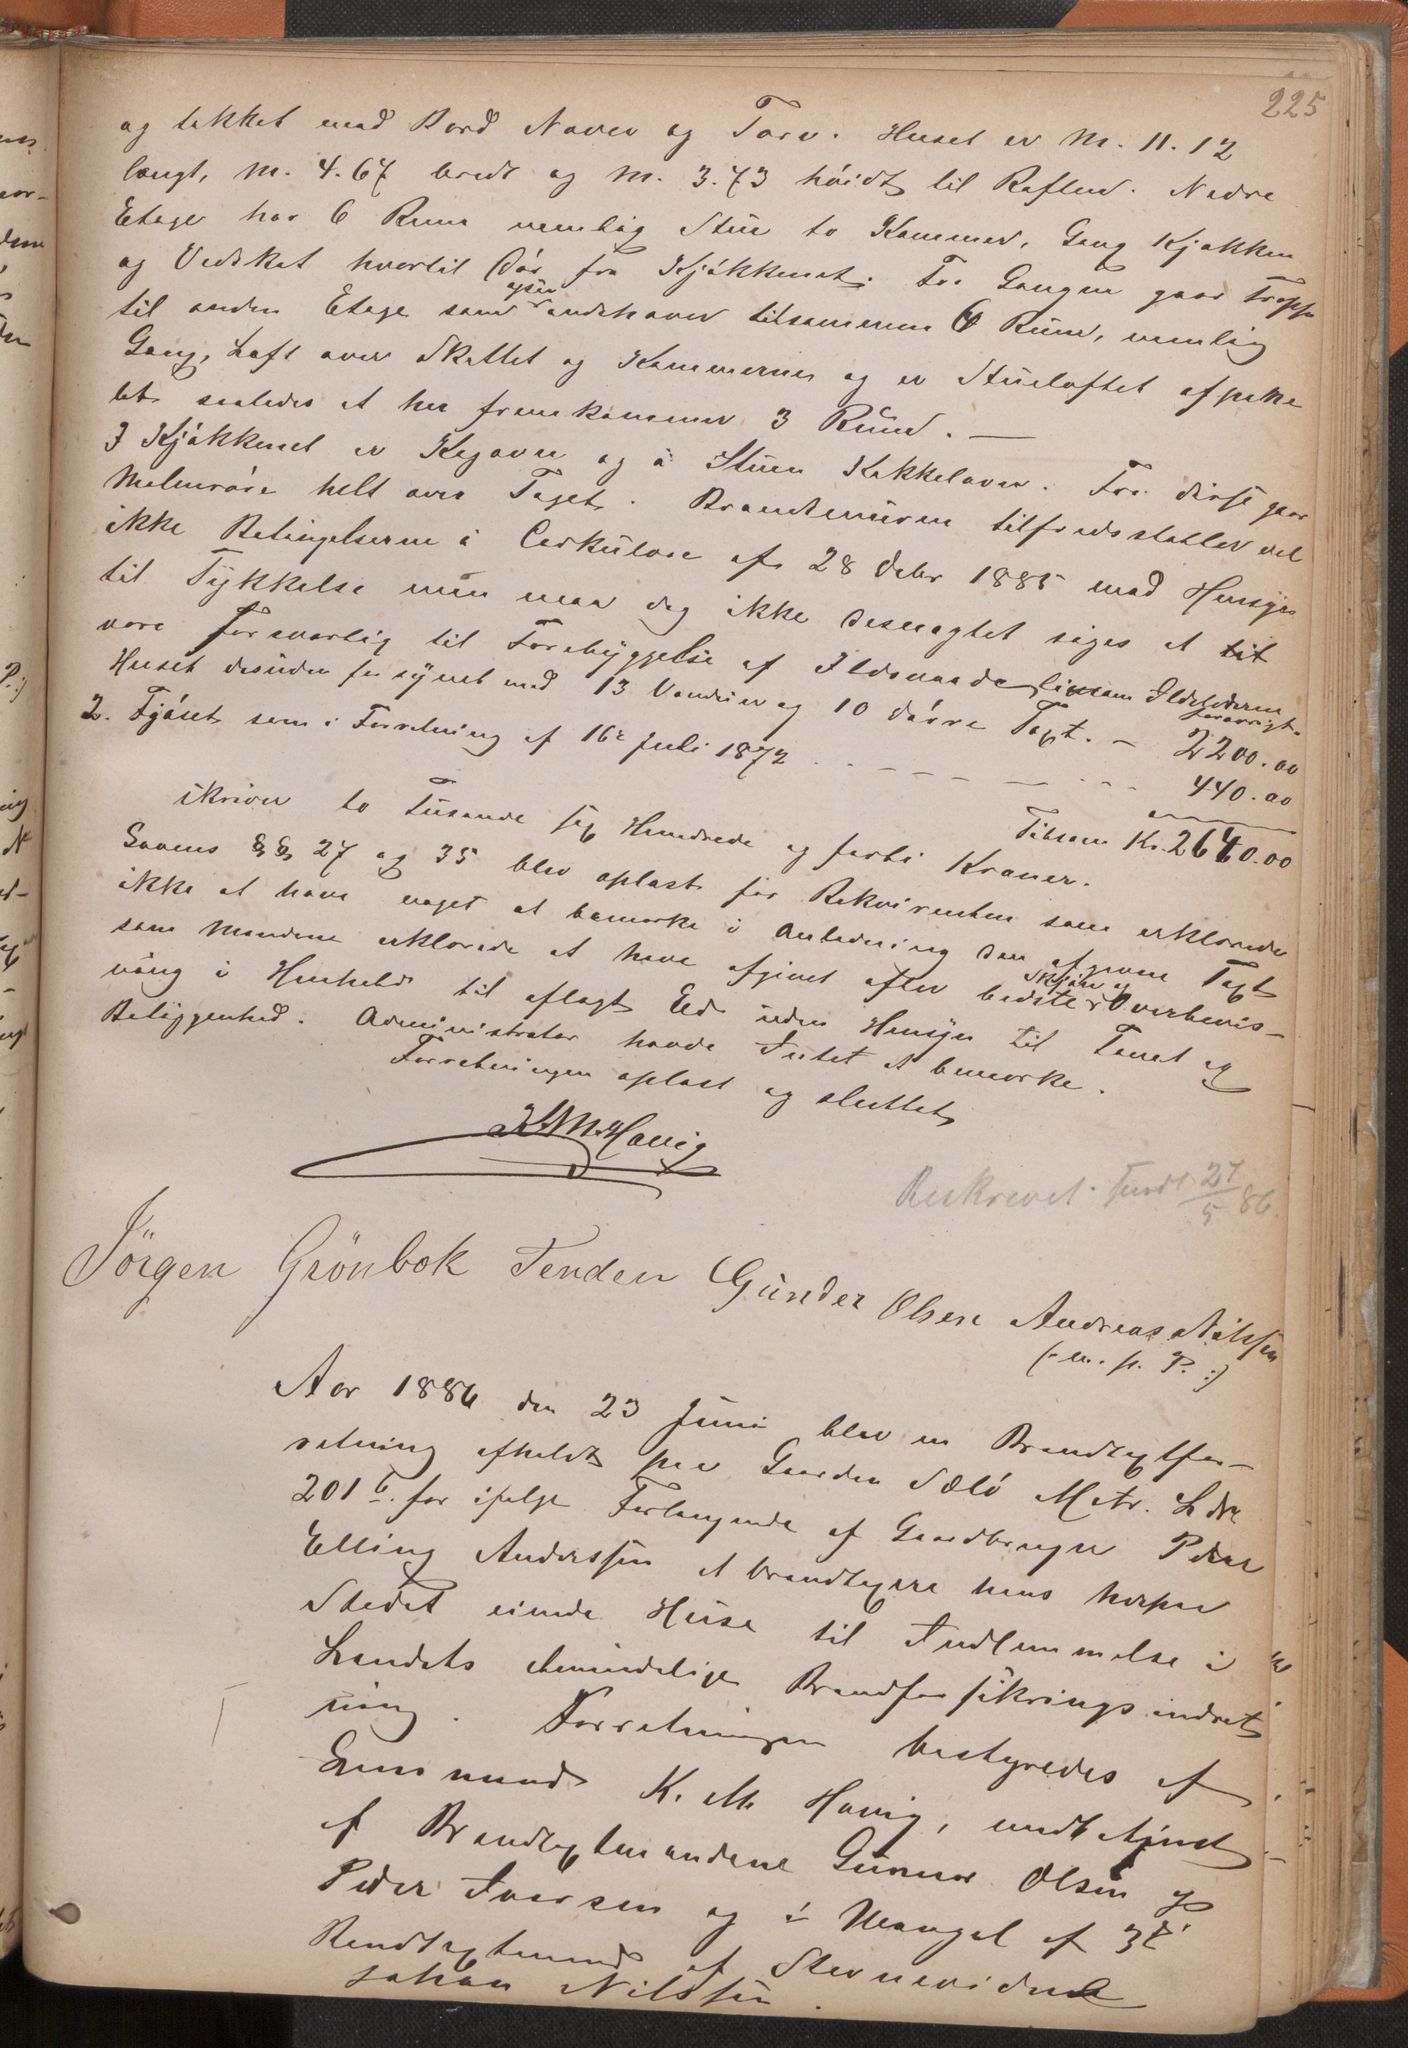 225
og tækket med Bord Næver og Torv. Huset er M. 11.12
langt, M. 4.67 bredt og M. 3.73 høidt til Raften. Nedre
Etage har 6 Rum nemlig Stue to Kammer, Gang Kjøkken
og Vedskot hvortil Dør fra Kjøkkenet. Fra Gangen gaar Trappe
til anden Etage som ogsaa indehaver tilsammen 4 Rum, nemlig
Gang, Loft over Skottet og Kammerne og er Stueloftet afpane
let saaledes at her fremkommer 3 Rum. —
I Kjøkkenet er Kogovn og i Stuen Kakkelovn. Fra disse gaar
Muurrøre helt over Taget. Brandmuren tilfredsstiller vel
ikke Betingelserne i Cirkulære af 28 Decbr 1885 med Hensyn
til Tykkelse men maa dog ikke desmagtet siges at
være forsvarlig til Forebyggelse af Ildsvaade, ligesom Ildstederne
forøvrigt.
Huset desuden forsynet med 13 Vinduer og 10 Døre Taxt. — 2200.00
2. Fjøset som i Forretning af 16de Juli 1872 . . — — — — — 440.00
Tilsam Kr. 2640.00
skriver to Tusende sex Hundrede og forti Kroner.
Lovens §§ 27 og 35 blev oplæst for Rekvirenten som erklærede
ikke at have noget at bemærke i Anledning den afgivne Taxt
som Mændene erklærede at have afgivet efter bedste Skjøn og Overbevis-
ning i Henhold til aflagt Ed uden Hensyn til Tomt og
Beliggenhed. Administrator havde Intet at bemærke.
Forretningen oplæst og sluttet
K. M. Havig
Beskrevet. Sendt 27/5 86
Jörgen Grönbek Tenden Gunder Olsen Andreas Nilssen
(: m. p. P. :)
Aar 1886 den 23 Juni blev en Brandtaxtfor-
retning afholdt paa Gaarden Sælø Matr. L dre
201 b. for ifølge Forlangende af Gaardbruger Peder
Elling Anderssen at brandtaxere hans herpaa
Stedet eiende Huse til Indlemmelse i
Landets Almindelige Brandforsikringsindret
ning. Forretningen bestyredes af
Lensmand K. M. Havig, meddetjent
af Brandtaxtmændene Gunnar Olsen og
Peder Iversen og i Mangel af 3die
Bandtaxtmand af Stevnevidne
Johan Nilssen.